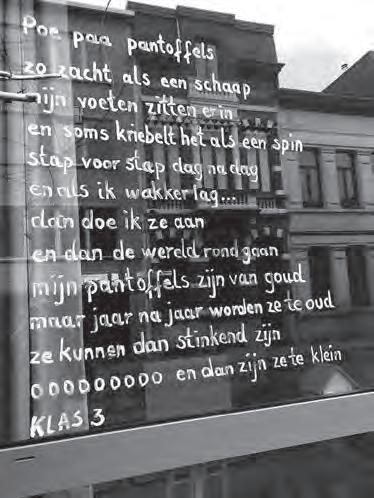 Poe paa pantoffels
zo zacht als een schaap
mijn voeten zitten erin
en soms kriebelt het als een spin
stap voor stap dag na dag
en als ik wakker lag...
dan doe ik ze aan
en dan de wereld rond gaan
mijn pantoffels zijn van goud
maar jaar na jaar worden ze te oud
ze kunnen dan stinkend zijn
ooooooooo en dan zijn ze te klein
KLAS 3